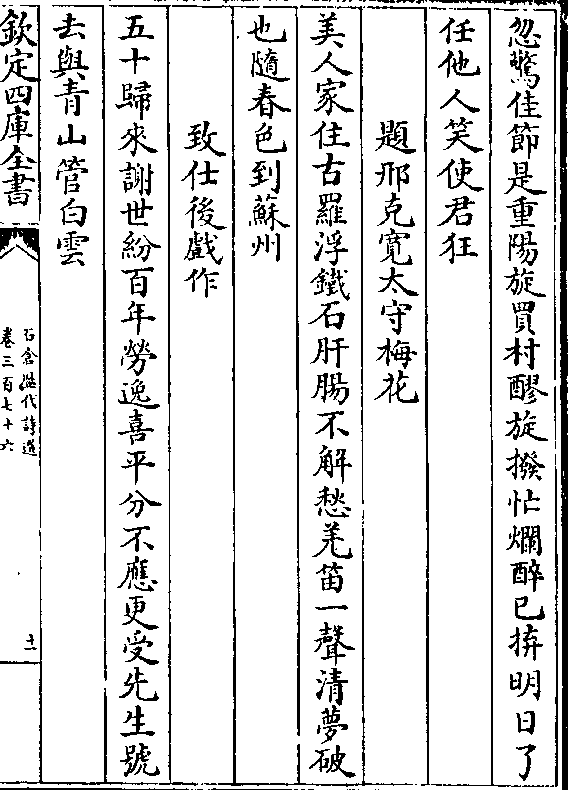 忽驚佳節是重陽旋買村醪旋撥忙爛醉已拚明日了
任他人笑使君狂
題邢克寛太守梅花
美人家住古羅浮鐵石肝腸不解愁羌笛一聲清夢破
也隨春色到蘇州
致仕後戲作
五十歸來謝世紛百年勞逸喜平分不應更受先生號
去與青山管白雲
欽定四庫全書
石倉歷代詩選
卷三百七十六
十一